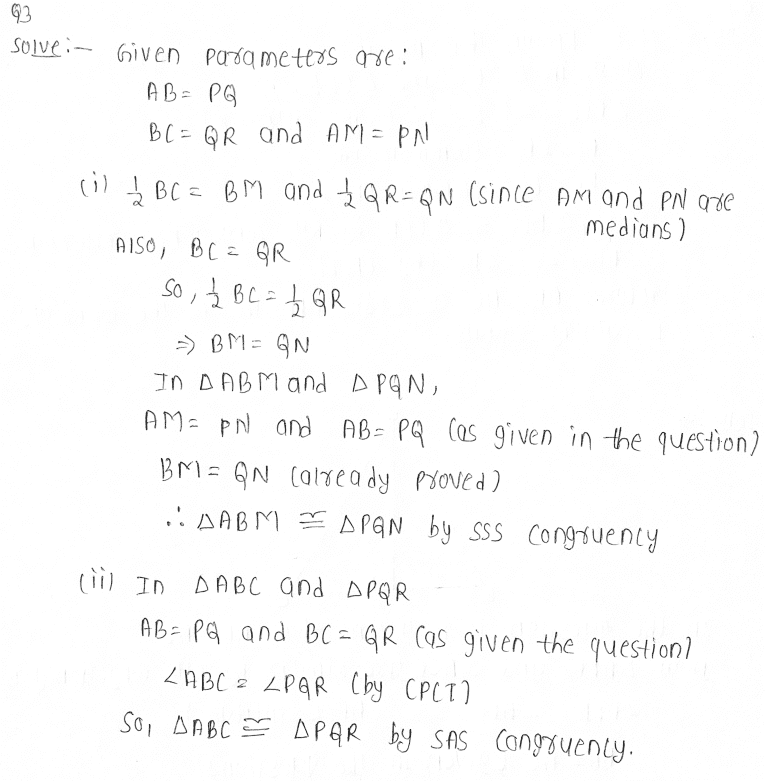 Q3
Solve:- Given parameters are:
AB = PQ
BC = QR and AM = PN
(i) 1/2 BC = BM and 1/2 QR = QN (since AM and PN are
medians)
Also, BC = QR
So, 1/2 BC = 1/2 QR
⇒ BM = QN
In △ABM and △PQN,
AM = PN and AB = PQ (as given in the question)
BM = QN (already proved)
∴ △ABM ≅ △PQN by SSS congruency
(ii) In △ABC and △PQR
AB = PQ and BC = QR (as given the question)
∠ABC = ∠PQR (by CPCT)
So, △ABC ≅ △PQR by SAS congruency.